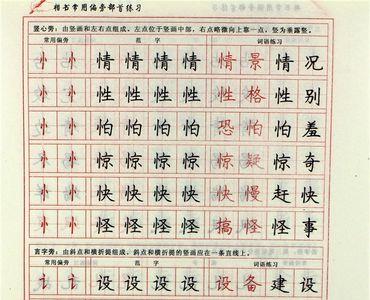 楷书常用偏旁部首练习
竖心旁：由竖画和左右点组成。左点位于竖画中部，右点略微向上靠一点，竖为垂露竖。
常用偏旁 范字 词语练习
忄 忄 情 情 情 情 情 景 情 况
忄 忄 性 性 性 性 性 格 性 别
忄 忄 怕 怕 怕 怕 恐 怕 怕 羞
忄 忄 惊 惊 惊 惊 惊 疑 惊 奇
忄 忄 快 快 快 快 快 慢 赶 快
忄 忄 怪 怪 怪 怪 搞 怪 怪 事
言字旁：由斜点和横折提组成。斜点和横折提的竖画应在一条直线上。
常用偏旁 范字 词语练习
讠 讠 设 设 设 设 设 备 建 设